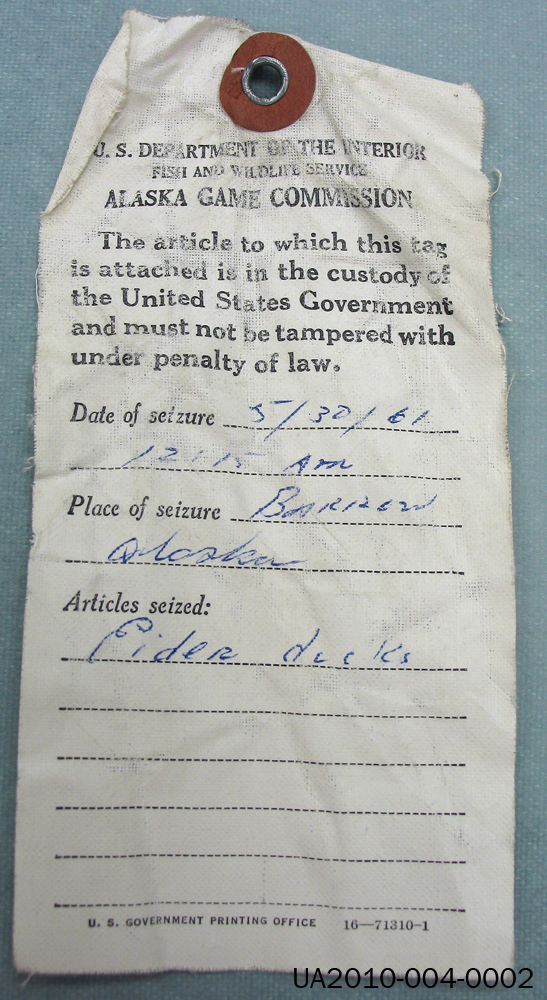 U. S. DEPARTMENT OF THE INTERIOR
FISH AND WILDLIFE SERVICE
ALASKA GAME COMMISSION
The article to which this tag
is attached is in the custody of
the United States Government
and must not be tampered with
under penalty of law.
Date of seizure 5/30/61
12:15 AM
Place of seizure BARROW
Alaska
Articles seized:
Eider ducks
U. S. GOVERNMENT PRINTING OFFICE 16—71310-1
UA2010-004-0002